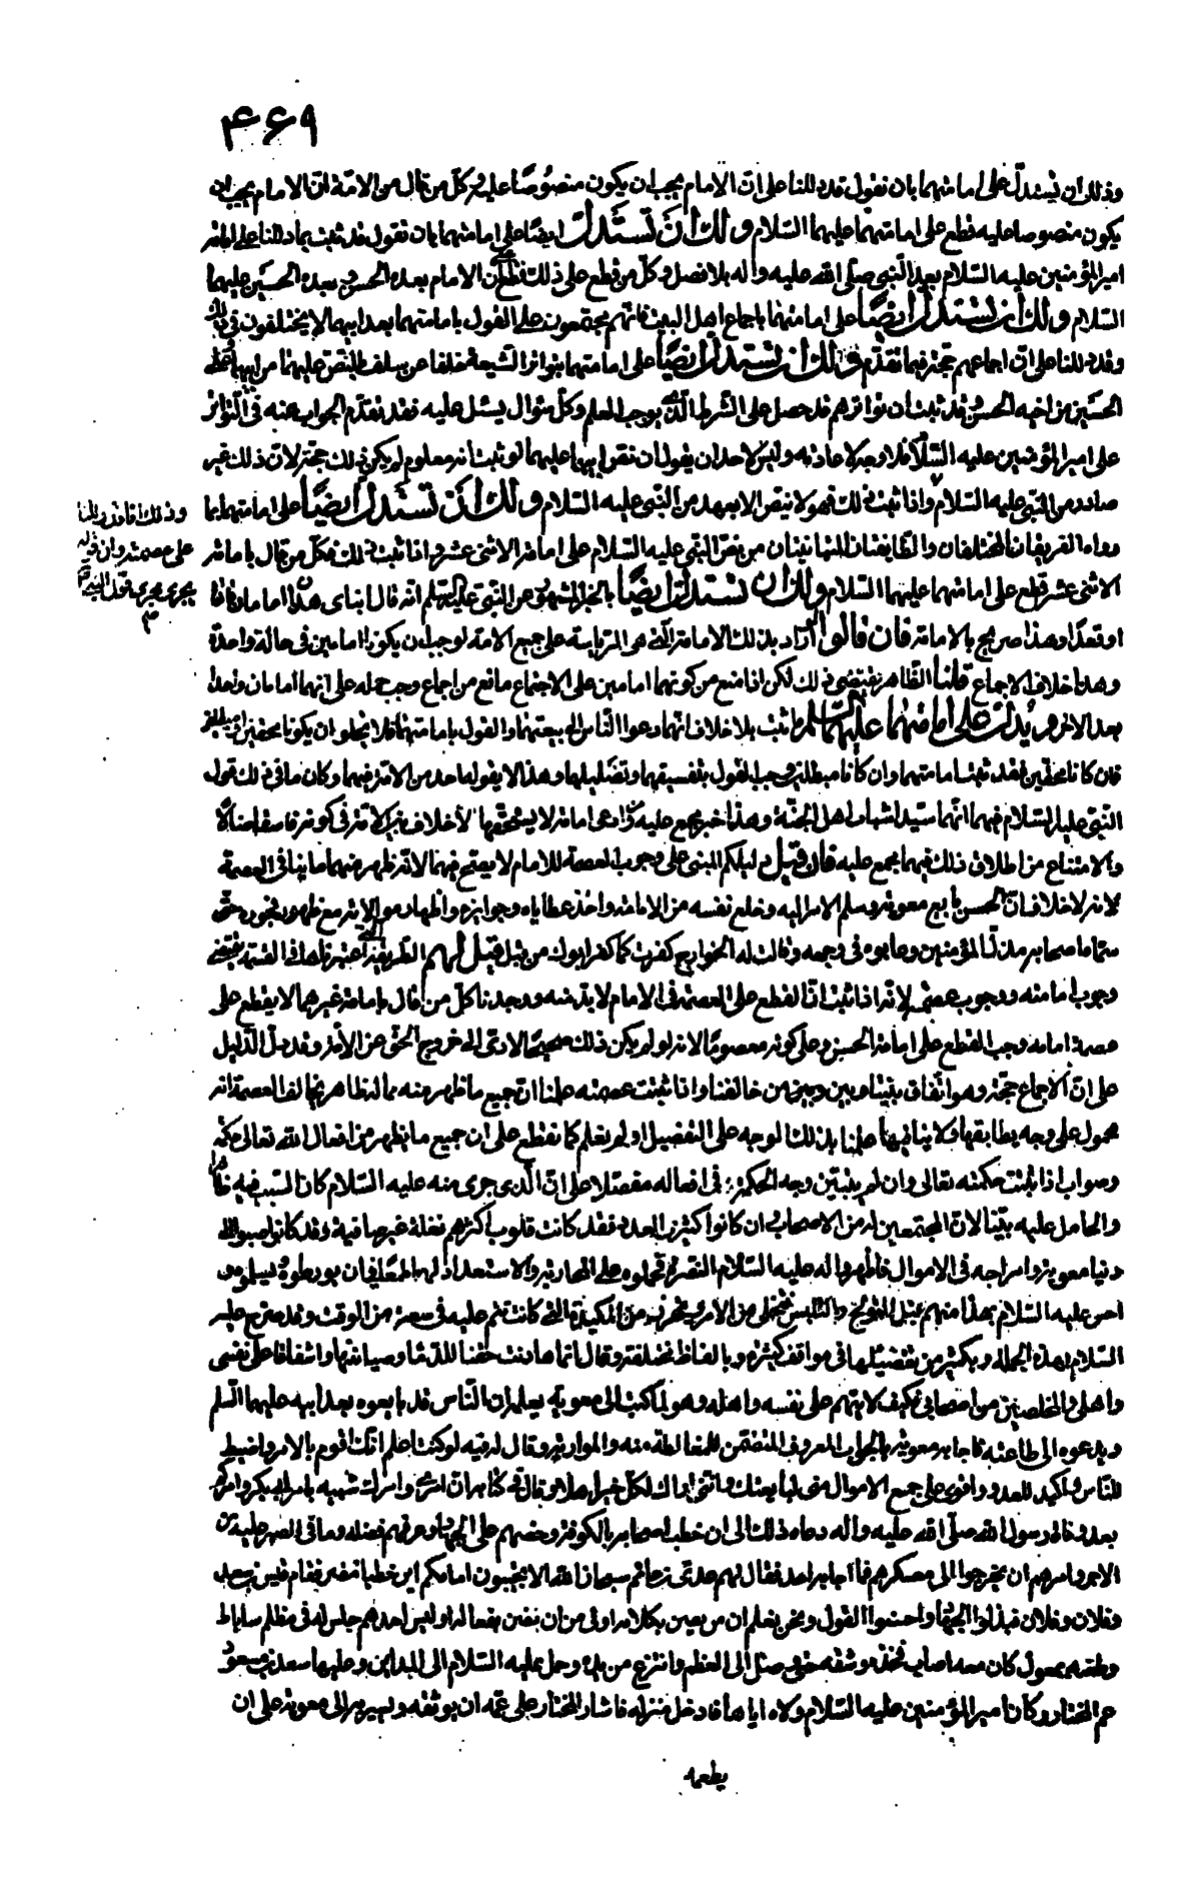 ۴۶۹
وذلك ان نستدل على امامتهما بان نقول قد دللنا على ان الامام يجب ان يكون منصوصا عليه وكل من قال من الامة ان الامام يجب ان
يكون منصوصا عليه قطع على امامتهما عليهما السلام ولك ان تستدل ايضا على امامتهما بان نقول قد ثبت بما دللنا على امامة
امير المؤمنين عليه السلام بعد النبي صلى الله عليه واله بلا فصل وكل من قطع على ذلك قطع على ان الامام بعده الحسن وبعده الحسين عليهما
السلام ولك ان تستدل ايضا على امامتهما باجماع اهل البيت فانهم مجتمعون على القول بامامتهما بعد ابيهما لا يختلفون في ذلك
وقد دللنا على ان اجماعهم حجة فيما تقدم ولك ان تستدل ايضا على امامتهما بتواتر الشيعة خلفا عن سلف بالنص عليهما من ابيهما
الحسين من اخيه الحسن وقد ثبت ان تواترهم قد حصل على الشرط الذي يوجب العلم وكل سؤال يسئل عليه فقد تقدم الجواب عنه في التواتر
على امير المؤمنين عليه السلام فلا وجه لاعادته وليس لاحد ان يقول ان نص ابيهما عليهما لو ثبت انه معلوم لم يكن في ذلك حجة لان ذلك غير
صادر من النبي عليه السلام واذا ثبت ذلك فهو لا ينص الا بعهد من النبي عليه السلام ولك ان تستدل ايضا على امامتهما بما
رواه الفريقان المختلفان والطايفتان المتباينتان من نص النبي عليه السلام على امامة الاثنى عشر واذا ثبت ذلك فكل من قال بامامة
الاثنى عشر قطع على امامتهما عليهما السلام ولك ان تستدل ايضا بالخبر المشهور عن النبي عليه السلم انه قال ابناى هذان امامان قاما
او قعدا وهذا صريح بالامامة فان قالوا اراد بذلك الامامة التي هي الرياسة على جميع الامة لوجب ان يكونا امامين في حالة واحدة
وهذا خلاف الاجماع قلنا الظاهر يقتضي ذلك لكن اذا منع من كونهما امامين على الاجتماع مانع من اجماع وجب حمله على انهما امامان واحدا
بعد الاخر ويدل على امامتهما عليهما السلم ما ثبت بلا خلاف انهما دعوا الناس الى بيعتهما والقول بامامتهما فلا يخلو ان يكونا محقين او مبطلين
فان كانا محقين فقد ثبت امامتهما وان كانا مبطلين وجب القول بتفسيقهما وتضليلهما وهذا لا يقوله احد من الامة فيهما وكان مانع ذلك قول
النبي عليه السلام فيهما انهما سيدا شباب اهل الجنة وهذا خبر مجمع عليه ومن ادعى امامة لا يستحقها لا خلاف بين الامة في كونه فاسقا ضالا
والامتناع من اطلاق ذلك فيهما مجمع عليه فان قيل دليلكم المبنى على وجوب العصمة للامام لا يصح فيهما لانه ظهر منهما ما ينافي العصمة
لانه لا خلاف ان الحسن بايع معوية وسلم الامر اليه وخلع نفسه من الامامة واخذ عطاياه وجوايزه واظهار موالاته مع ظهور فجوره حتى
سماه اصحابه مذل المؤمنين وعابوه في وجهه وقالت له الخوارج كفرت كما كفر ابوك من قبل قيل لهم الطريقة التي اعتبرناها في القسمة يقتضي
وجوب امامته ووجوب عصمته لانه اذا ثبت ان القطع على العصمة في الامام لا بد منه ووجدنا كل من قال بامامة غيرهما لا يقطع على
عصمة امامه وجب القطع على امامة الحسن وعلى كونه معصوما لانه لو لم يكن ذلك صحيحا لادى الى خروج الحق عن الامة وقد دل الدليل
على ان الاجماع حجة وهو اتفاق بيننا وبين من خالفنا واذا ثبتت عصمته علمنا ان جميع ما ظهر منه مما له ظاهر يخالف العصمة انه
محمول على وجه يطابقها ولا ينافيها علمنا بذلك الوجه على التفصيل او لم نعلم كما نقطع على ان جميع ما يظهر من افعال الله تعالى حكمة
وصواب اذا ثبتت حكمته تعالى وان لم يتبين وجه الحكمة في افعاله مفصلا على ان الذي جرى منه عليه السلام كان السبب فيه ظاهرا
والحامل عليه بينا لان المجتمعين له من الاصحاب وان كانوا كثيري العدد فقد كانت قلوب اكثرهم نغلة غير صافية وقد كانوا صبوا الى
دنيا معوية وامراجه في الاموال فاظهروا له عليه السلام النصرة وحملوه على المحاربة والاستعداد لها طمعا في ان يورطوه ويسلموه
احس عليه السلام بهذا منهم قبل التولج والتلبس فتخلى من الامر وتحرز من المكيدة التي كانت تتم عليه في سعة من الوقت وقد صرح عليه
السلام بهذه الجملة وبكثير من تفصيلها في مواقف كثيرة وبالفاظ مختلفة وقال انما هادنت حقنا للدماء وصيانتها واشفاقا على نفسي
واهلي والمخلصين من اصحابي فكيف لا يتهم على نفسه واهله وهو لما كتب الى معوية يعلمه ان الناس قد بايعوه بعد ابيه عليهما السلم
ويدعوه الى طاعته فاجابه معوية بالجواب المعروف المتضمن للمغالطة منه والمواربة وقال له فيه لو كنت اعلم انك اقوم بالامر واضبط
للناس واكيد للعدو واقوى على جميع الاموال مني لبايعتك لانني اراك لكل خير اهلا وقال في كتابه ان امري وامرك شبيه بامر ابي بكر وامركم
بعد وفاة رسول الله صلى الله عليه واله دعاه ذلك الى ان خطب اصحابه بالكوفة وحضهم على الجهاد وعرفهم فضله وما في الصبر عليه من
الاجر وامرهم ان يخرجوا الى معسكرهم فما اجابه احد فقال لهم عدي بن حاتم سبحان الله الا تجيبون امامكم اين خطباء مضر فقام قيس بن سعد
وفلان وفلان فبذلوا الجهاد واحسنوا القول ونحن نعلم ان من يضن بكلامه اولى من ان يضن بفعاله اوليس احدهم جلس له في مظلم ساباط
وطعنه بمعول كان معه اصاب فخذه وشقه حتى وصل الى العظم وانتزع من يده وحمل عليه السلام الى المداين وعليها سعد بن مسعود
عم المختار وكان امير المؤمنين عليه السلام ولاه اياها فادخل منزله فاشار المختار على عمه ان يوثقه ويسير به الى معوية على ان
يطعمه
وذلك انا قد دللنا
على عصمته وان قوله
يجري مجرى قول النبي